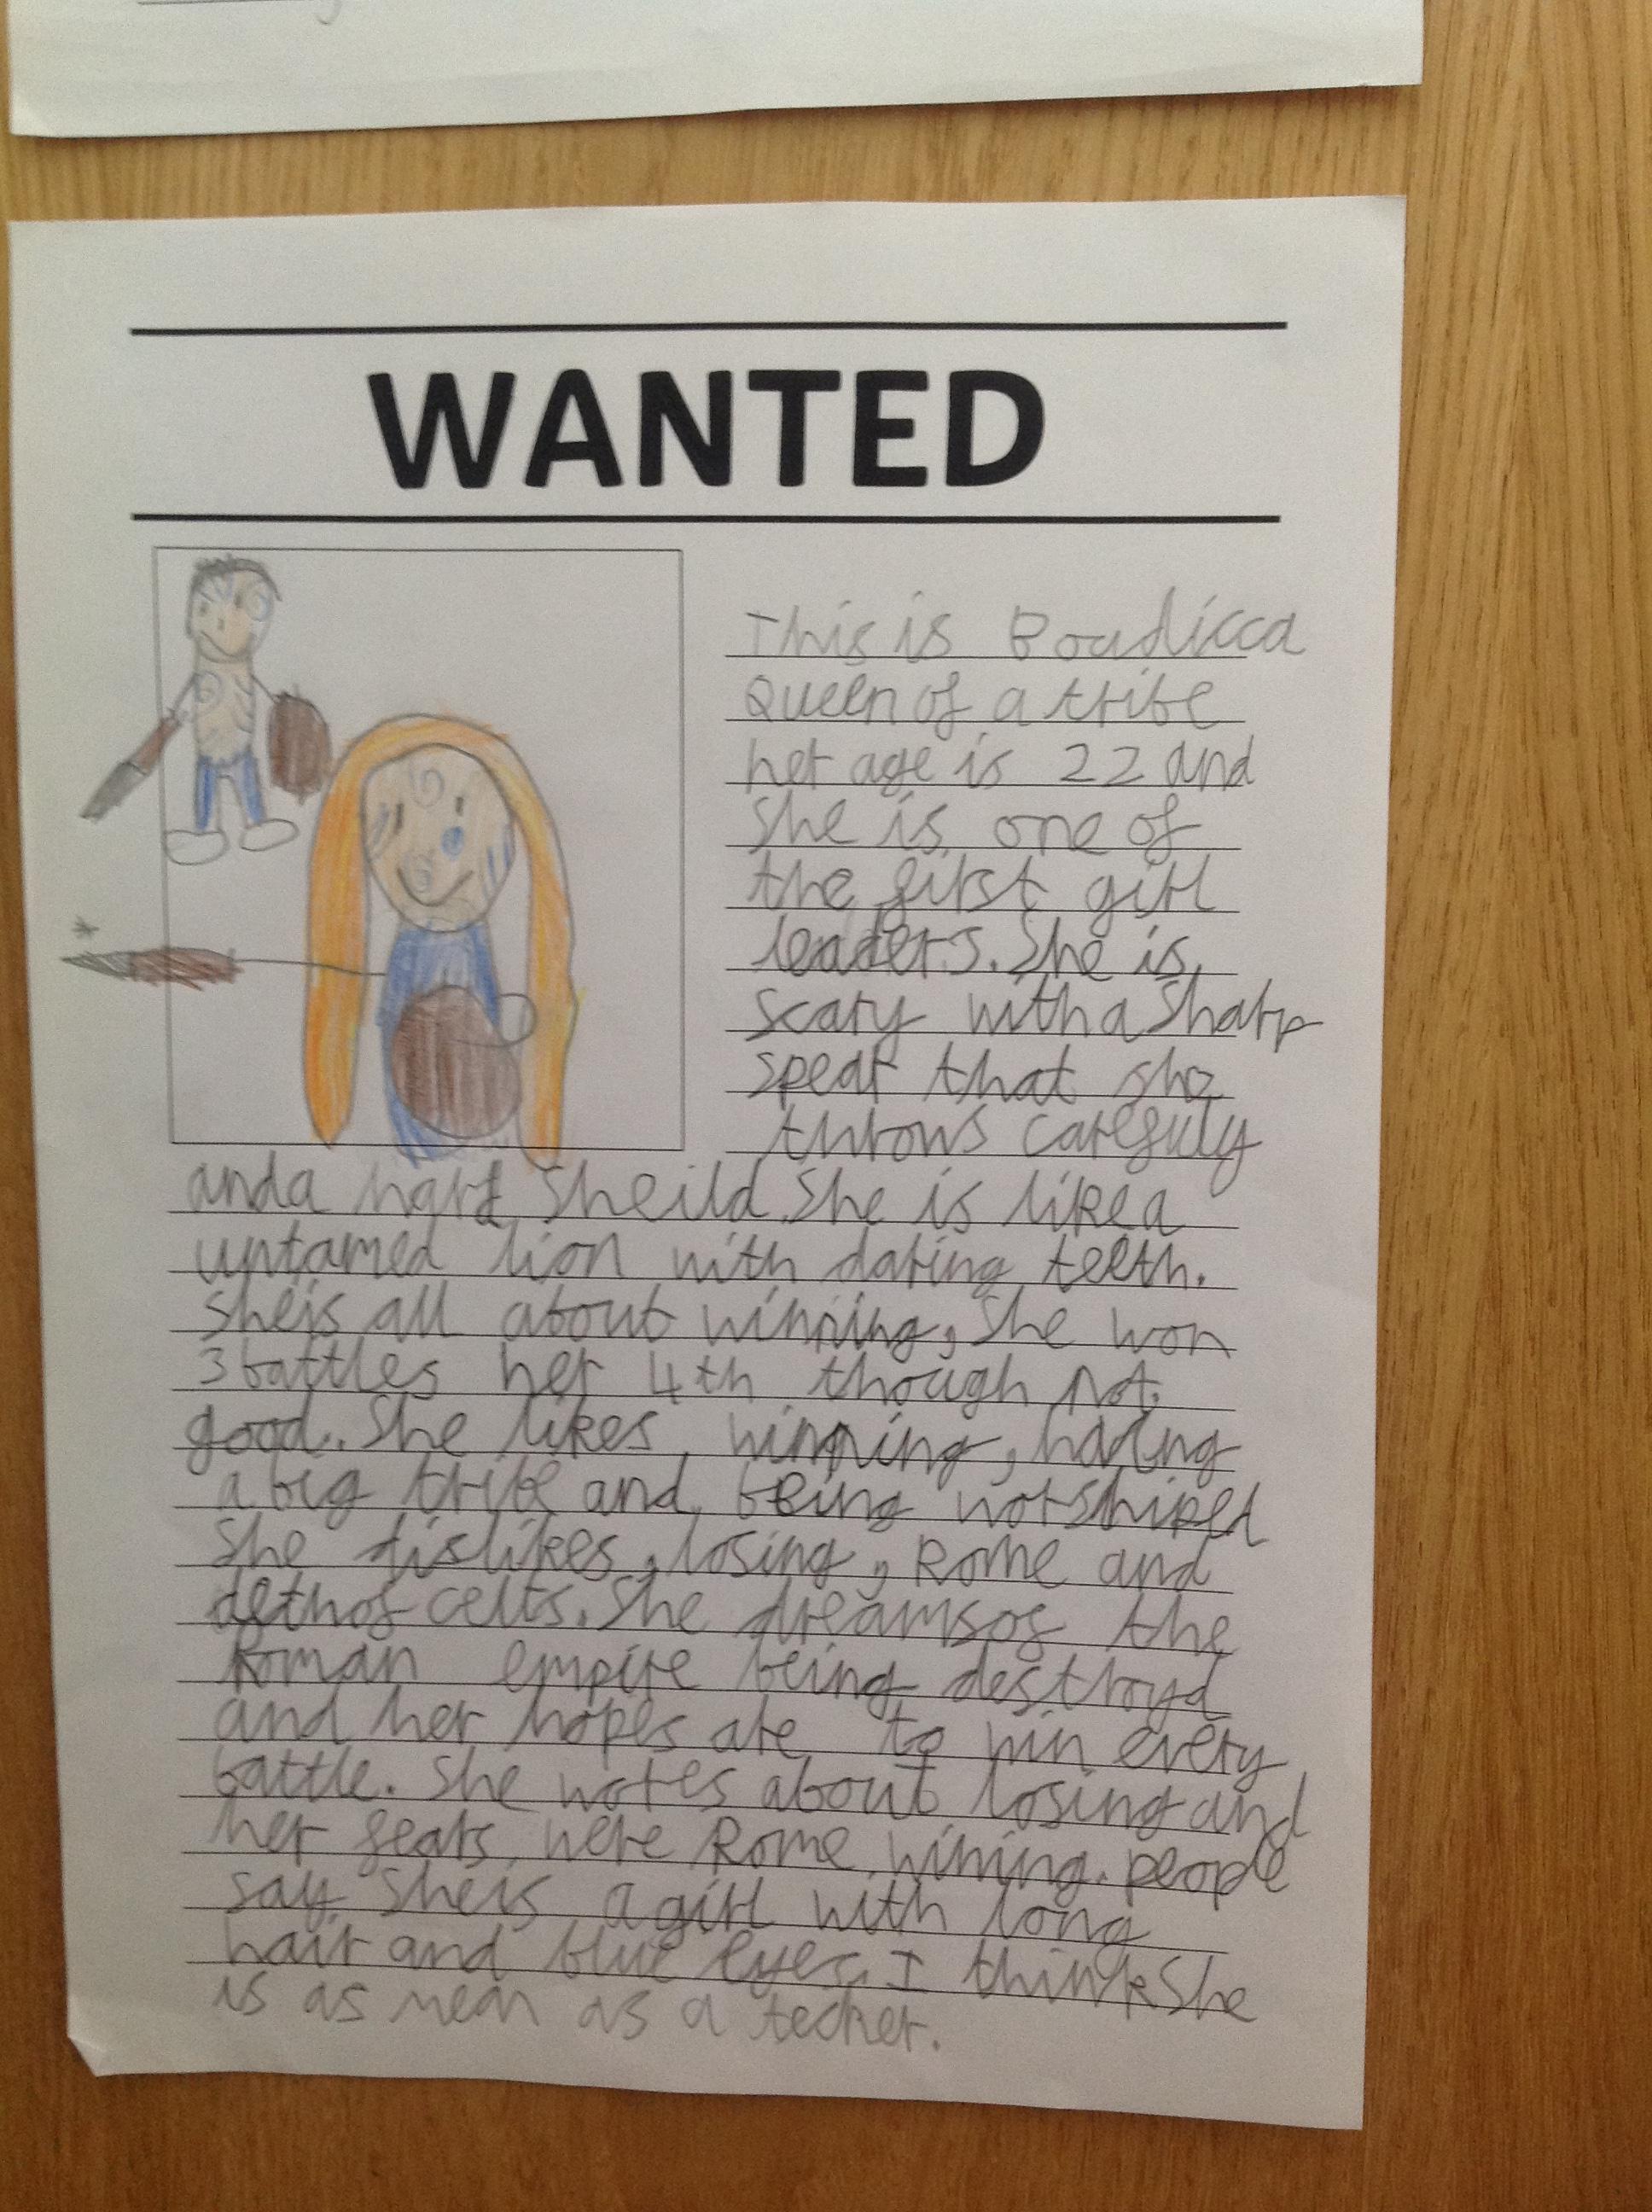 WANTED
This is Boudicca
Queen of a tribe
her age is 22 and
she is one of
the first girl
leaders. She is
scary with a sharp
spear that she
throws carefuly
and a hard sheild. She is like a
untamed lion with daring teeth.
She is all about wining, She won
3 battles her 4th though not
good. She likes winning, having
a big tribe and being worshiped
She dislikes, losing, Rome and
deth of celts. She dreams of the
Roman empire being destroyd
and her hopes are to win every
battle. She wores about losing and
her fears were Rome wining. people
say she is a girl with long
hair and blue eyes. I think She
is as mean as a techer.